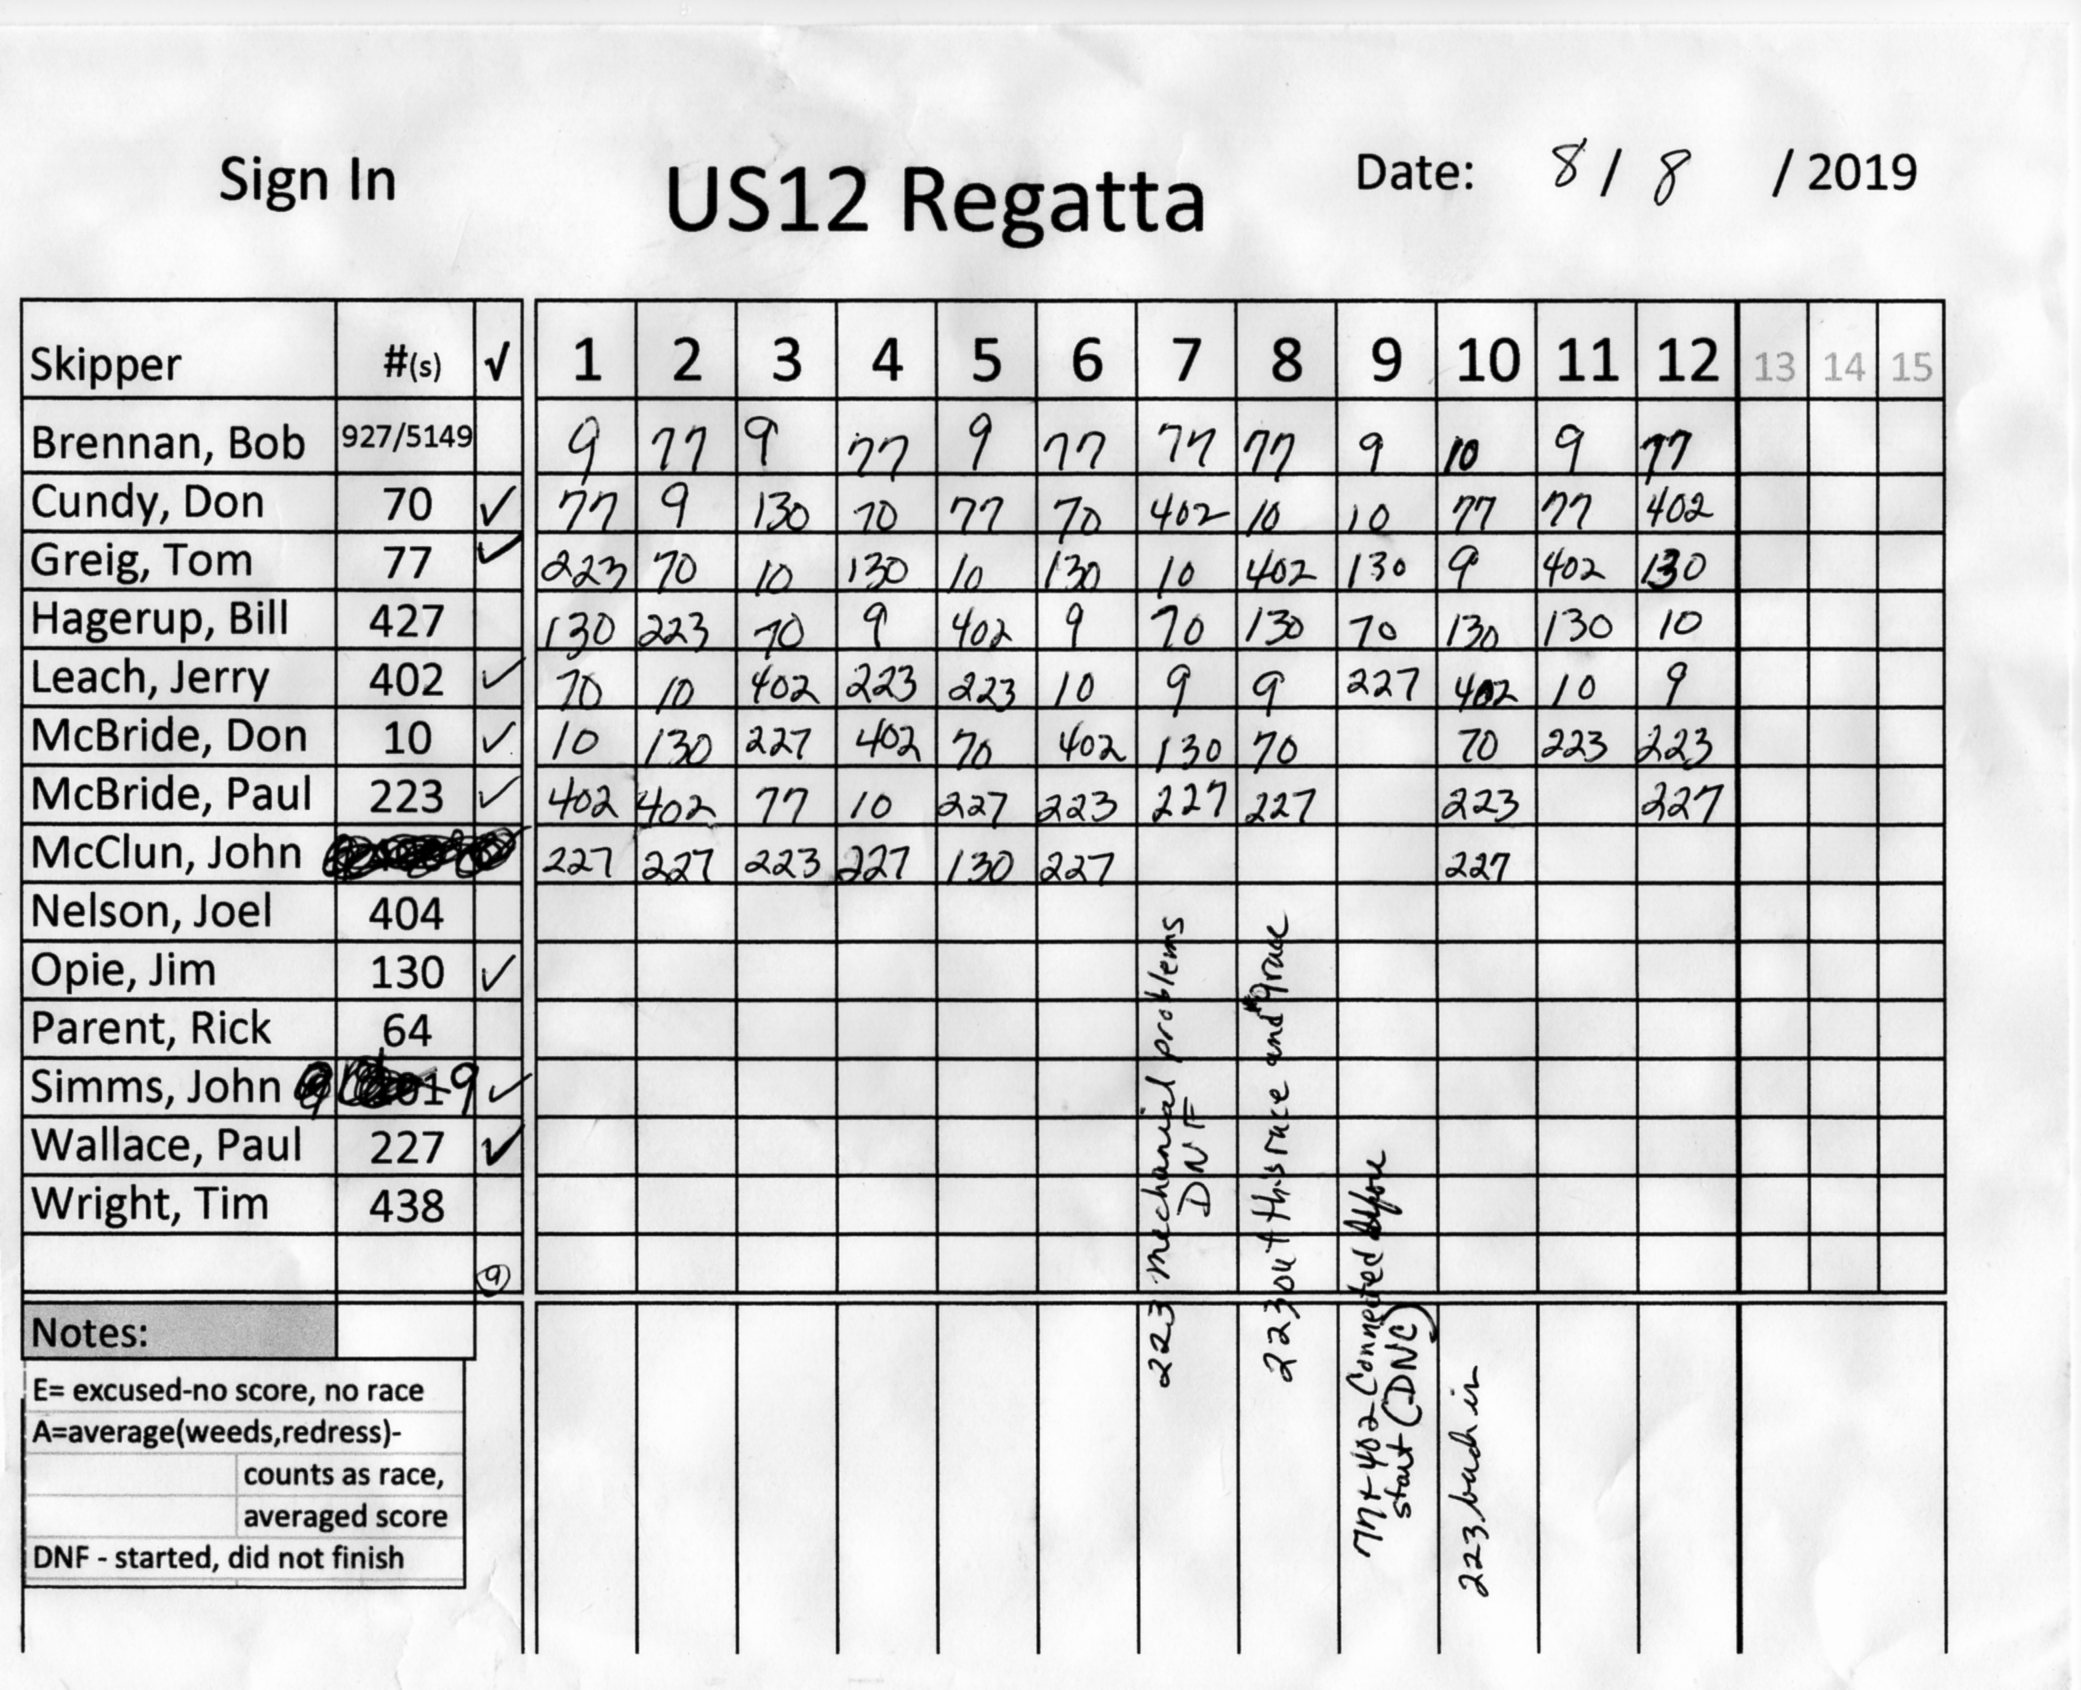 Sign In US12 Regatta Date: 8 / 8 / 2019
Skipper #(s) √ 1 2 3 4 5 6 7 8 9 10 11 12 13 14 15
Brennan, Bob 927/5149 9 77 9 77 9 77 77 77 9 10 9 77
Cundy, Don 70 ✓ 77 9 130 70 77 70 402 10 10 77 77 402
Greig, Tom 77 ✓ 223 70 10 130 10 130 10 402 130 9 402 130
Hagerup, Bill 427 130 223 70 9 402 9 70 130 70 130 130 10
Leach, Jerry 402 ✓ 70 10 402 223 223 10 9 9 227 402 10 9
McBride, Don 10 ✓ 10 130 227 402 70 402 130 70 70 223 223
McBride, Paul 223 ✓ 402 402 77 10 227 223 227 227 223 227
McClun, John 227 227 223 227 130 227 227
Nelson, Joel 404
Opie, Jim 130 ✓
Parent, Rick 64
Simms, John 9 ✓
Wallace, Paul 227 ✓
Wright, Tim 438
9
223 mechanial problems
DNF
223 out this race and #9 race
77 + 402 Connected before
start (DNC)
223 back in
Notes:
E= excused-no score, no race
A=average(weeds,redress)-
counts as race,
averaged score
DNF - started, did not finish